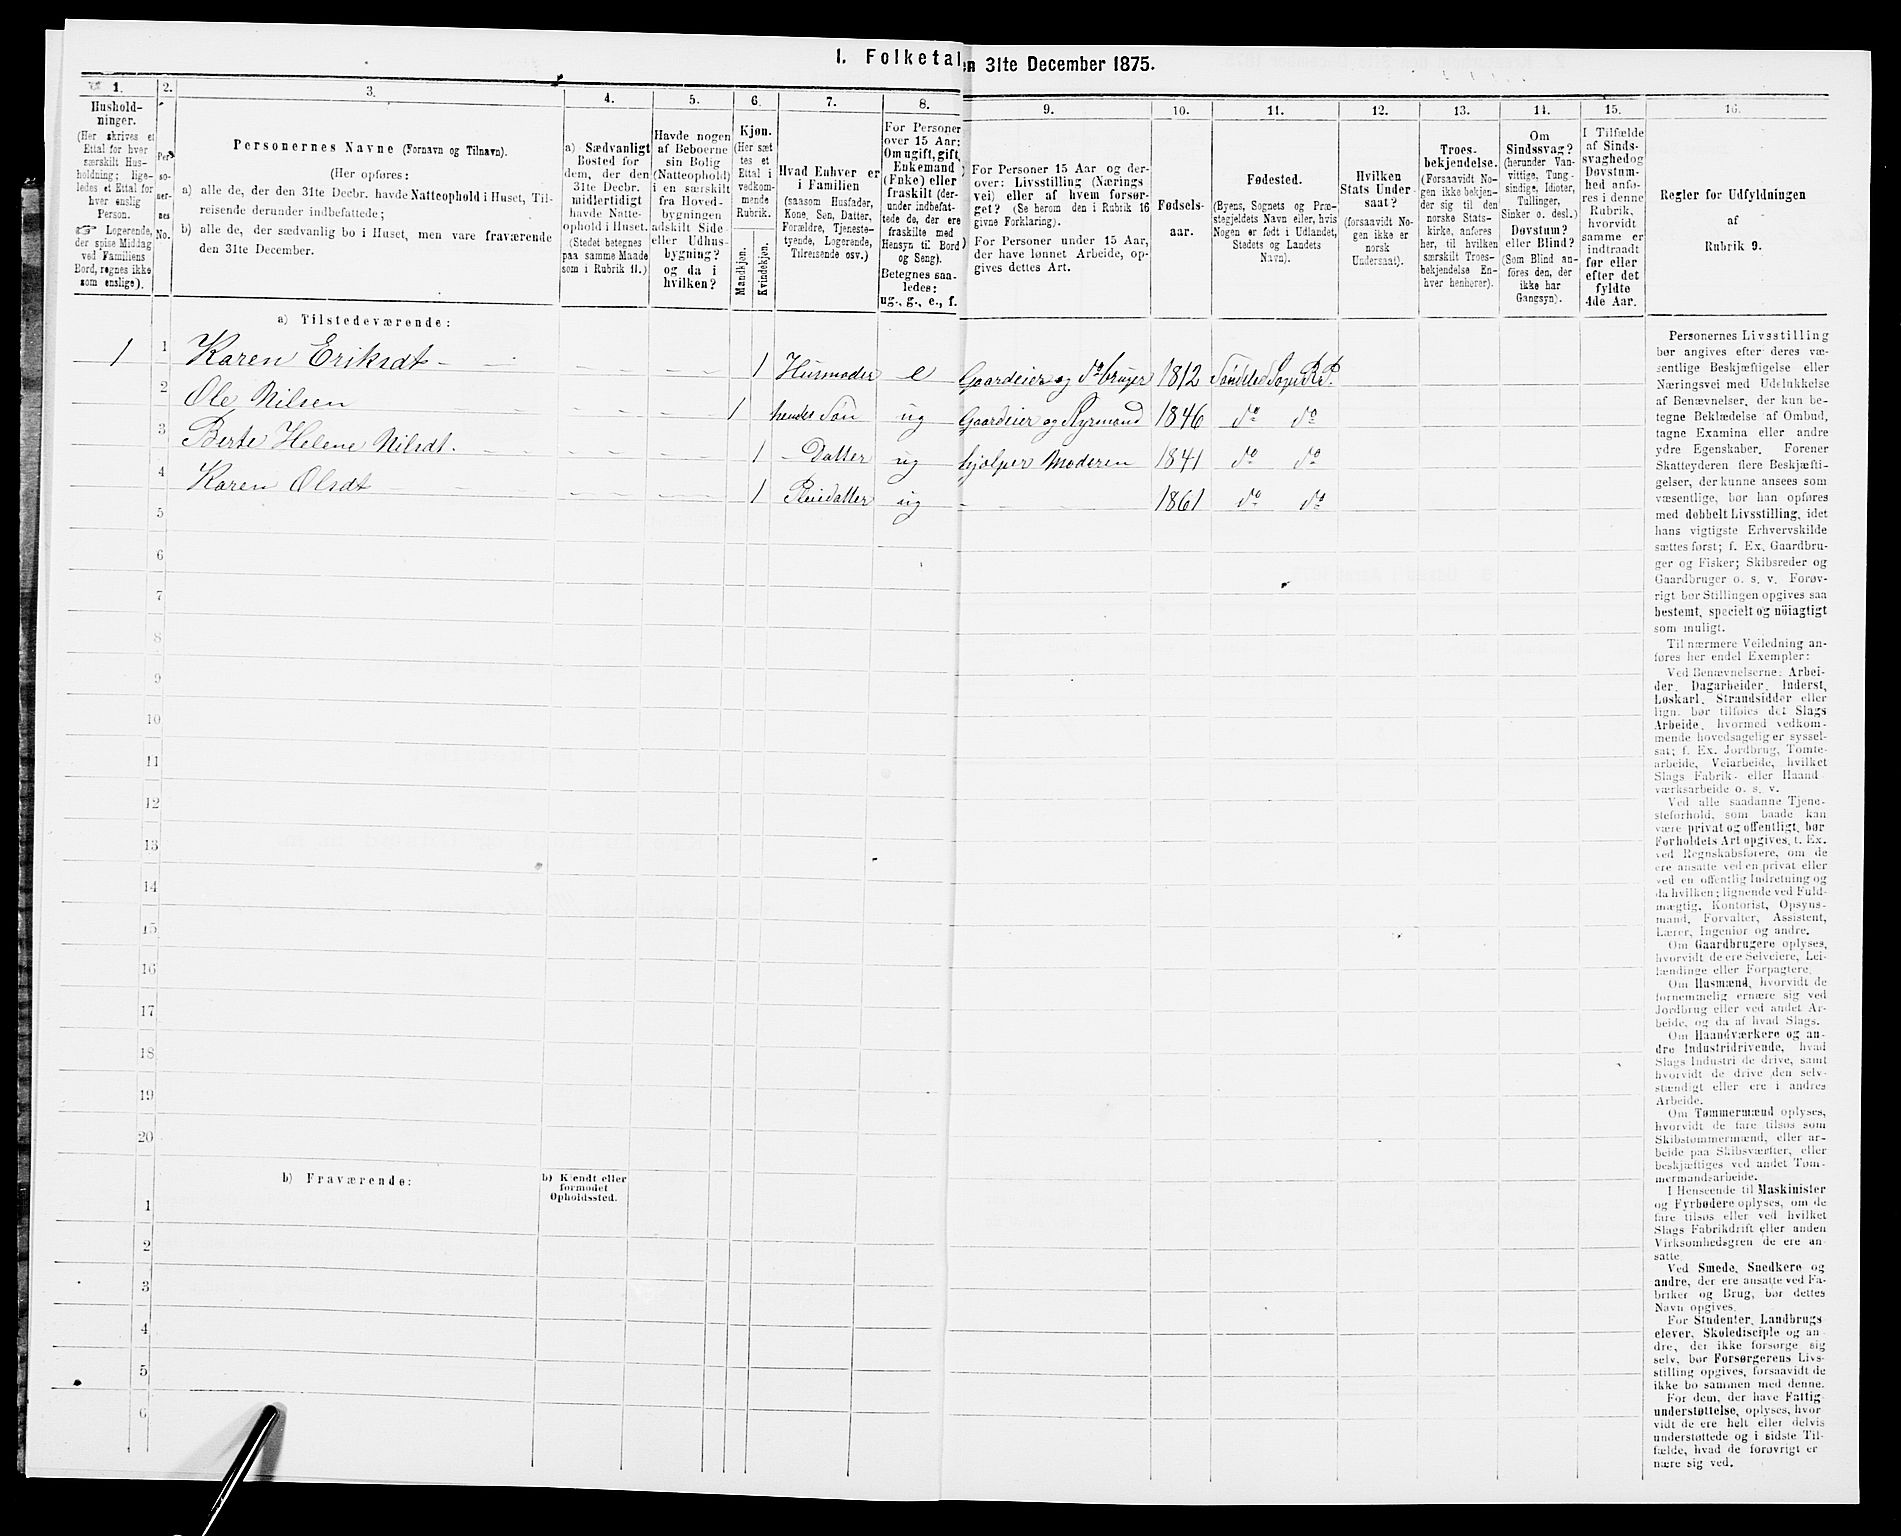 1. Folketal
en 31te December 1875.
1.
Hushold-
ninger.
(Her skrives et
Ettal for hver
særskilt Hus-
holdning; lige-
ledes et Ettal for
hver enslig
Person.
☞ Logerende,
der spise Middag
ved Familiens
Bord, regnes ikke
som enslige).
2.
Per-
so-
ner-
nes
No.
3.
Personernes Navne (Fornavn og Tilnavn).
(Her opføres:
a) alle de, der den 31te Decbr. havde Natteophold i Huset, Til-
reisende derunder indbefattede;
b) alle de, der sædvanlig bo i Huset, men vare fraværende
den 31te December.
4.
a) Sædvanligt
Bosted for
dem, der den
31te Decbr.
midlertidigt
havde Natte-
ophold i Huset.
(Stedet betegnes
paa samme Maade
som i Rubrik 11.)
5.
Havde nogen
af Beboerne
sin Bolig
(Natteophold)
i en særskilt
fra Hoved-
bygningen
adskilt Side
eller Udhus-
bygning?
og da i
hvilken?
6.
Kjøn.
(Her sæt
tes et
Ettal i
vedkom-
mende
Rubrik.
Mandkjøn.
Kvindekjøn.
7.
Hvad Enhver er
i Familien
(saasom Husfader,
Kone, Søn, Datter,
Forældre, Tjeneste-
tyende, Logerende,
Tilreisende osv.)
8.
For Personer
over 15 Aar:
Om ugift, gift,
Enkemand
(Enke) eller
fraskilt (der-
under indbefat-
tede de, der ere
fraskilte med
Hensyn til Bord
og Seng).
Betegnes saa-
ledes:
ug., g., e., f.
9.
For Personer 15 Aar og der-
over: Livsstilling (Nærings
vei) eller af hvem forsør-
get? (Se herom den i Rubrik 16
givne Forklaring).
For Personer under 15 Aar,
der have lønnet Arbeide, op-
gives dettes Art.
10.
Fødsels-
aar.
11.
Fødested.
(Byens, Sognets og Præ-
stegjeldets Navn eller, hvis
Nogen er født i Udlandet,
Stedets og Landets
Navn).
12.
Hvilken
Stats Under-
saat?
(forsaavidt No-
gen ikke er
norsk
Undersaat).
13.
Troes-
bekjendelse.
(Forsaavidt No-
gen ikke bekjen-
der sig til den
norske Stats-
kirke, anføres
her, til hvilken
særskilt Troes-
bekjendelse En-
hver henhører).
14.
Om
Sindssvag?
(herunder Van-
vittige, Tung-
sindige, Idioter,
Tullinger,
Sinker o. desl.)
Døvstum?
eller Blind?
(Som Blind an-
føres den, der
ikke har
Gangsyn).
15.
I Tilfælde
af Sinds-
svaghed og
Døvstum-
hed anfø-
res i denne
Rubrik,
hvorvidt
samme er
indtraadt
før eller
efter det
fyldte
4de Aar.
16.
Regler for Udfyldningen
af
Rubrik 9.
a) Tilstedeværende:
1 1 Karen Eriksdt 1 Husmoder e Gaardeier og do bruger 1812 Søndeled Sogn R. P.
2 Ole Nilsen 1 hendes Søn ug Gaardeier og Styrmand 1846 do do
3 Berte Helene Nilsdt. 1 Datter ug hjælper Moderen 1841 do do
4 Karen Olsdt 1 Pleiedatter ug 1861 do do
5
6
7
8
9
10
11
12
13
14
15
16
17
18
19
20
b) Fraværende:
b) Kjendt eller
formodet
Opholdssted.
1
2
3
4
5
6
Personernes Livsstilling
bør angives efter deres væ-
sentlige Beskjæftigelse eller
Næringsvei med Udelukkelse
af Benævnelser, der kun be-
tegne Beklædelse af Ombud,
tagne Examina eller andre
ydre Egenskaber. Forener
Skatteyderen flere Beskjæfti-
gelser, der kunne ansees som
væsentlige, bør han opføres
med dobbelt Livsstilling, idet
hans vigtigste Erhvervskilde
sættes først; f. Ex. Gaardbru-
ger og Fisker; Skibsreder og
Gaardbruger o. s. v. Forøv-
rigt bør Stillingen opgives saa
bestemt, specielt og nöiagtigt
som muligt.
Til nærmere Veiledning an-
føres her endel Exempler:
Ved Benævnelserne: Arbei-
der, Dagarbeider, Inderst,
Løskarl, Strandsidder eller
lign. bør tilføies det Slags
Arbeide, hvormed vedkom-
mende hovedsagelig er syssel-
sat; f. Ex. Jordbrug, Tomte-
arbeide, Veiarbeide, hvilket
Slags Fabrik- eller Haand-
værksarbeide o. s. v.
Ved alle saadanne Tjene-
steforhold, som baade kan
være privat og offentligt, bør
Forholdets Art opgives, f. Ex.
ved Regnskabsførere, om de
ere ansatte ved en privat eller
ved en offentlig Indretning og
da hvilken; lignende ved Fuld-
mægtig, Kontorist, Opsyns-
mand, Forvalter, Assistent,
Lærer, Ingeniør og andre.
Om Gaardbrugere oplyses,
hvorvidt de ere Selveiere, Lei-
lændinge eller Forpagtere.
Om Husmænd, hvorvidt de
fornemmelig ernære sig ved
Jordbrug eller ved andet Ar-
beide, og da af hvad Slags.
Om Haandværkere og an-
dre Industridrivende, hvad
Slags Industri de drive, samt
hvorvidt de drive den selv-
stændigt eller ere i andres
Arbeide.
Om Tømmermænd oplyses,
hvorvidt de fare tilsøs som
Skibstømmermænd, eller ar-
beide paa Skibsværfter, eller
beskjæftiges ved andet Tøm-
mermandsarbeide.
I Henseende til Maskinister
og Fyrbødere oplyses, om de
fare tilsøs eller ved hvilket
Slags Fabrikdrift eller anden
Virksomhedsgren de ere an-
satte
Ved Smede, Snedkere og
andre, der ere ansatte ved Fa-
briker og Brug, bør dettes
Navn opgives.
For Studenter, Landbrugs-
elever, Skoledisciple og an-
dre, der ikke forsørge sig
selv, bør Forsørgerens Livs-
stilling opgives, forsaavidt de
ikke bo sammen med denne.
For dem, der have Fattig-
understøttelse, oplyses, hvor-
vidt de ere helt eller delvis
understøttede og i sidste Til-
fælde, hvad de forøvrigt er
nære sig ved.